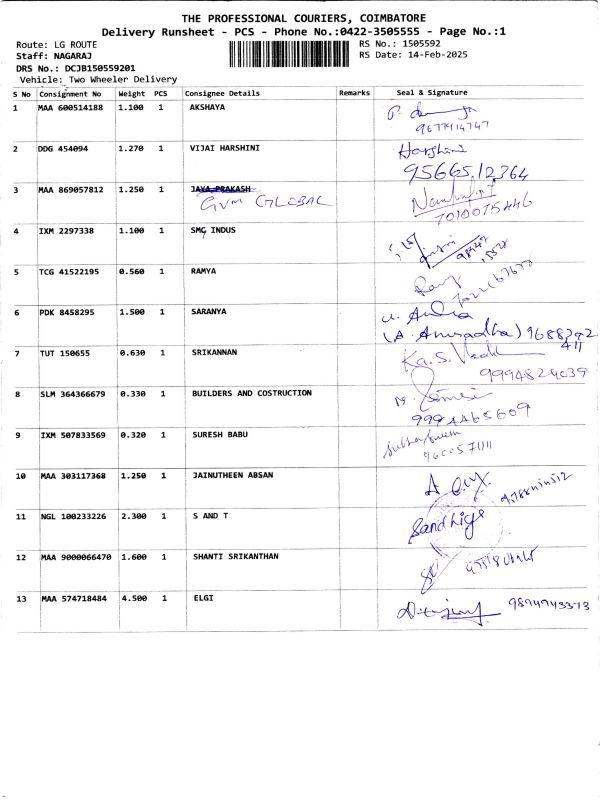 THE PROFESSIONAL COURIERS, COIMBATORE
Delivery Runsheet - PCS - Phone No.:0422-3505555 - Page No.:1
Route: LG ROUTE RS No.: 1505592
Staff: NAGARAJ RS Date: 14-Feb-2025
DRS No.: DCJB150559201
Vehicle: Two Wheeler Delivery
S No Consignment No Weight PCS Consignee Details Remarks Seal & Signature
1 MAA 600514188 1.100 1 AKSHAYA
9677914747
2 DDG 454094 1.270 1 VIJAI HARSHINI Harshini
95665.12364
3 MAA 869057812 1.250 1 JAYA PRAKASH
GVM GLOBAL
7010075446
4 IXM 2297338 1.100 1 SMG INDUS
5 TCG 41522195 0.560 1 RAMYA
6 PDK 8458295 1.500 1 SARANYA
(A. Anusadha) 9688292
411
7 TUT 150655 0.630 1 SRIKANNAN Ka.S.
9994824039
8 SLM 364366679 0.330 1 BUILDERS AND COSTRUCTION
9994465609
9 IXM 507833569 0.320 1 SURESH BABU
9600571111
10 MAA 303117368 1.250 1 JAINUTHEEN ABSAN
11 NGL 100233226 2.300 1 S AND T Sandhiya
12 MAA 9000066470 1.600 1 SHANTI SRIKANTHAN
13 MAA 574718484 4.500 1 ELGI
9894943373